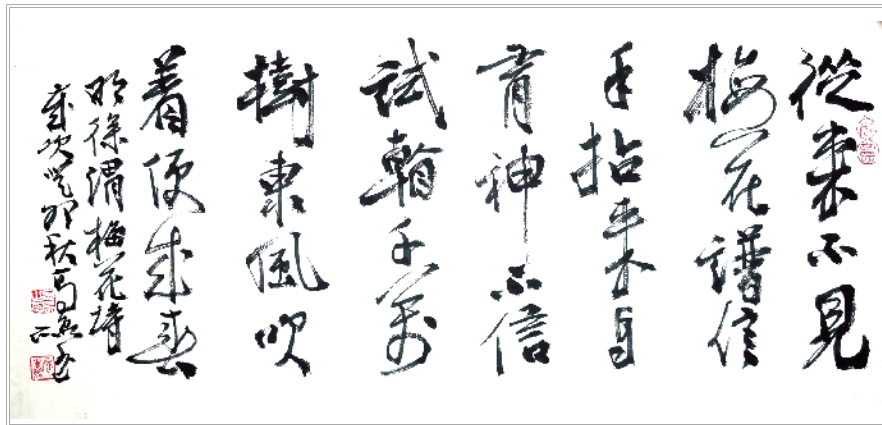 從來不見
梅花譜信
手拈來自
有神不信
試看千萬
樹東風吹
着便成春
明徐渭梅花詩
歲次己卯秋高